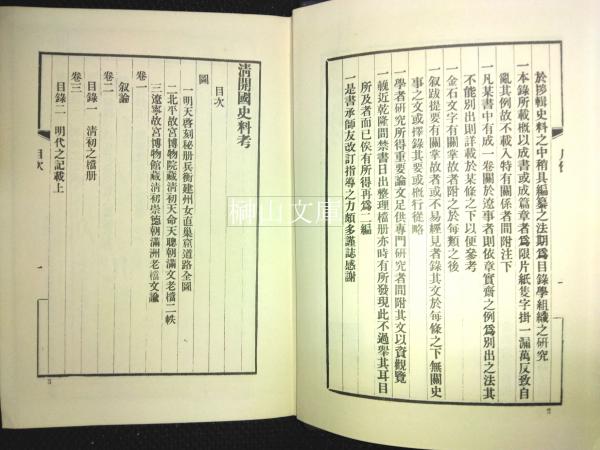 於搜輯史料之中稍具編纂之法期爲目錄學組織之研究
一本錄所載槪以成書或成篇章者爲限片紙隻字掛一漏萬反致自
亂其例故不載入特有關係者間附注下
一凡某書中有成一卷關於遼事者則依章實齋之例爲別出之法其
不能別出則詳載於某條之下以便參考
一金石文字有關掌故者附之於每類之後
一叙跋提要有關掌故者或不易經見者錄其文於每條之下無關史
事之文或擇錄其要或槪行從略
一學者研究所得重要論文足供專門研究者間附其文以資觀覽
一輓近乾隆間禁書日出整理檔册亦時有所發現此不過舉其耳目
所及者而已俟有所得再爲二編
一是書承師友改訂指導之力頗多謹誌感謝
一
2
清開國史料考
目次
圖
一明天啓刻秘册兵衡建州女直巢京道路全圖
二北平故宮博物院藏淸初天命天聰朝滿文老檔二帙
三遼寧故宮博物館藏淸初崇德朝滿洲老檔文諭
卷一
叙論
卷二
目錄一 淸初之檔册
卷三
目錄二 明代之記載上
目次
一
3
榊山文庫